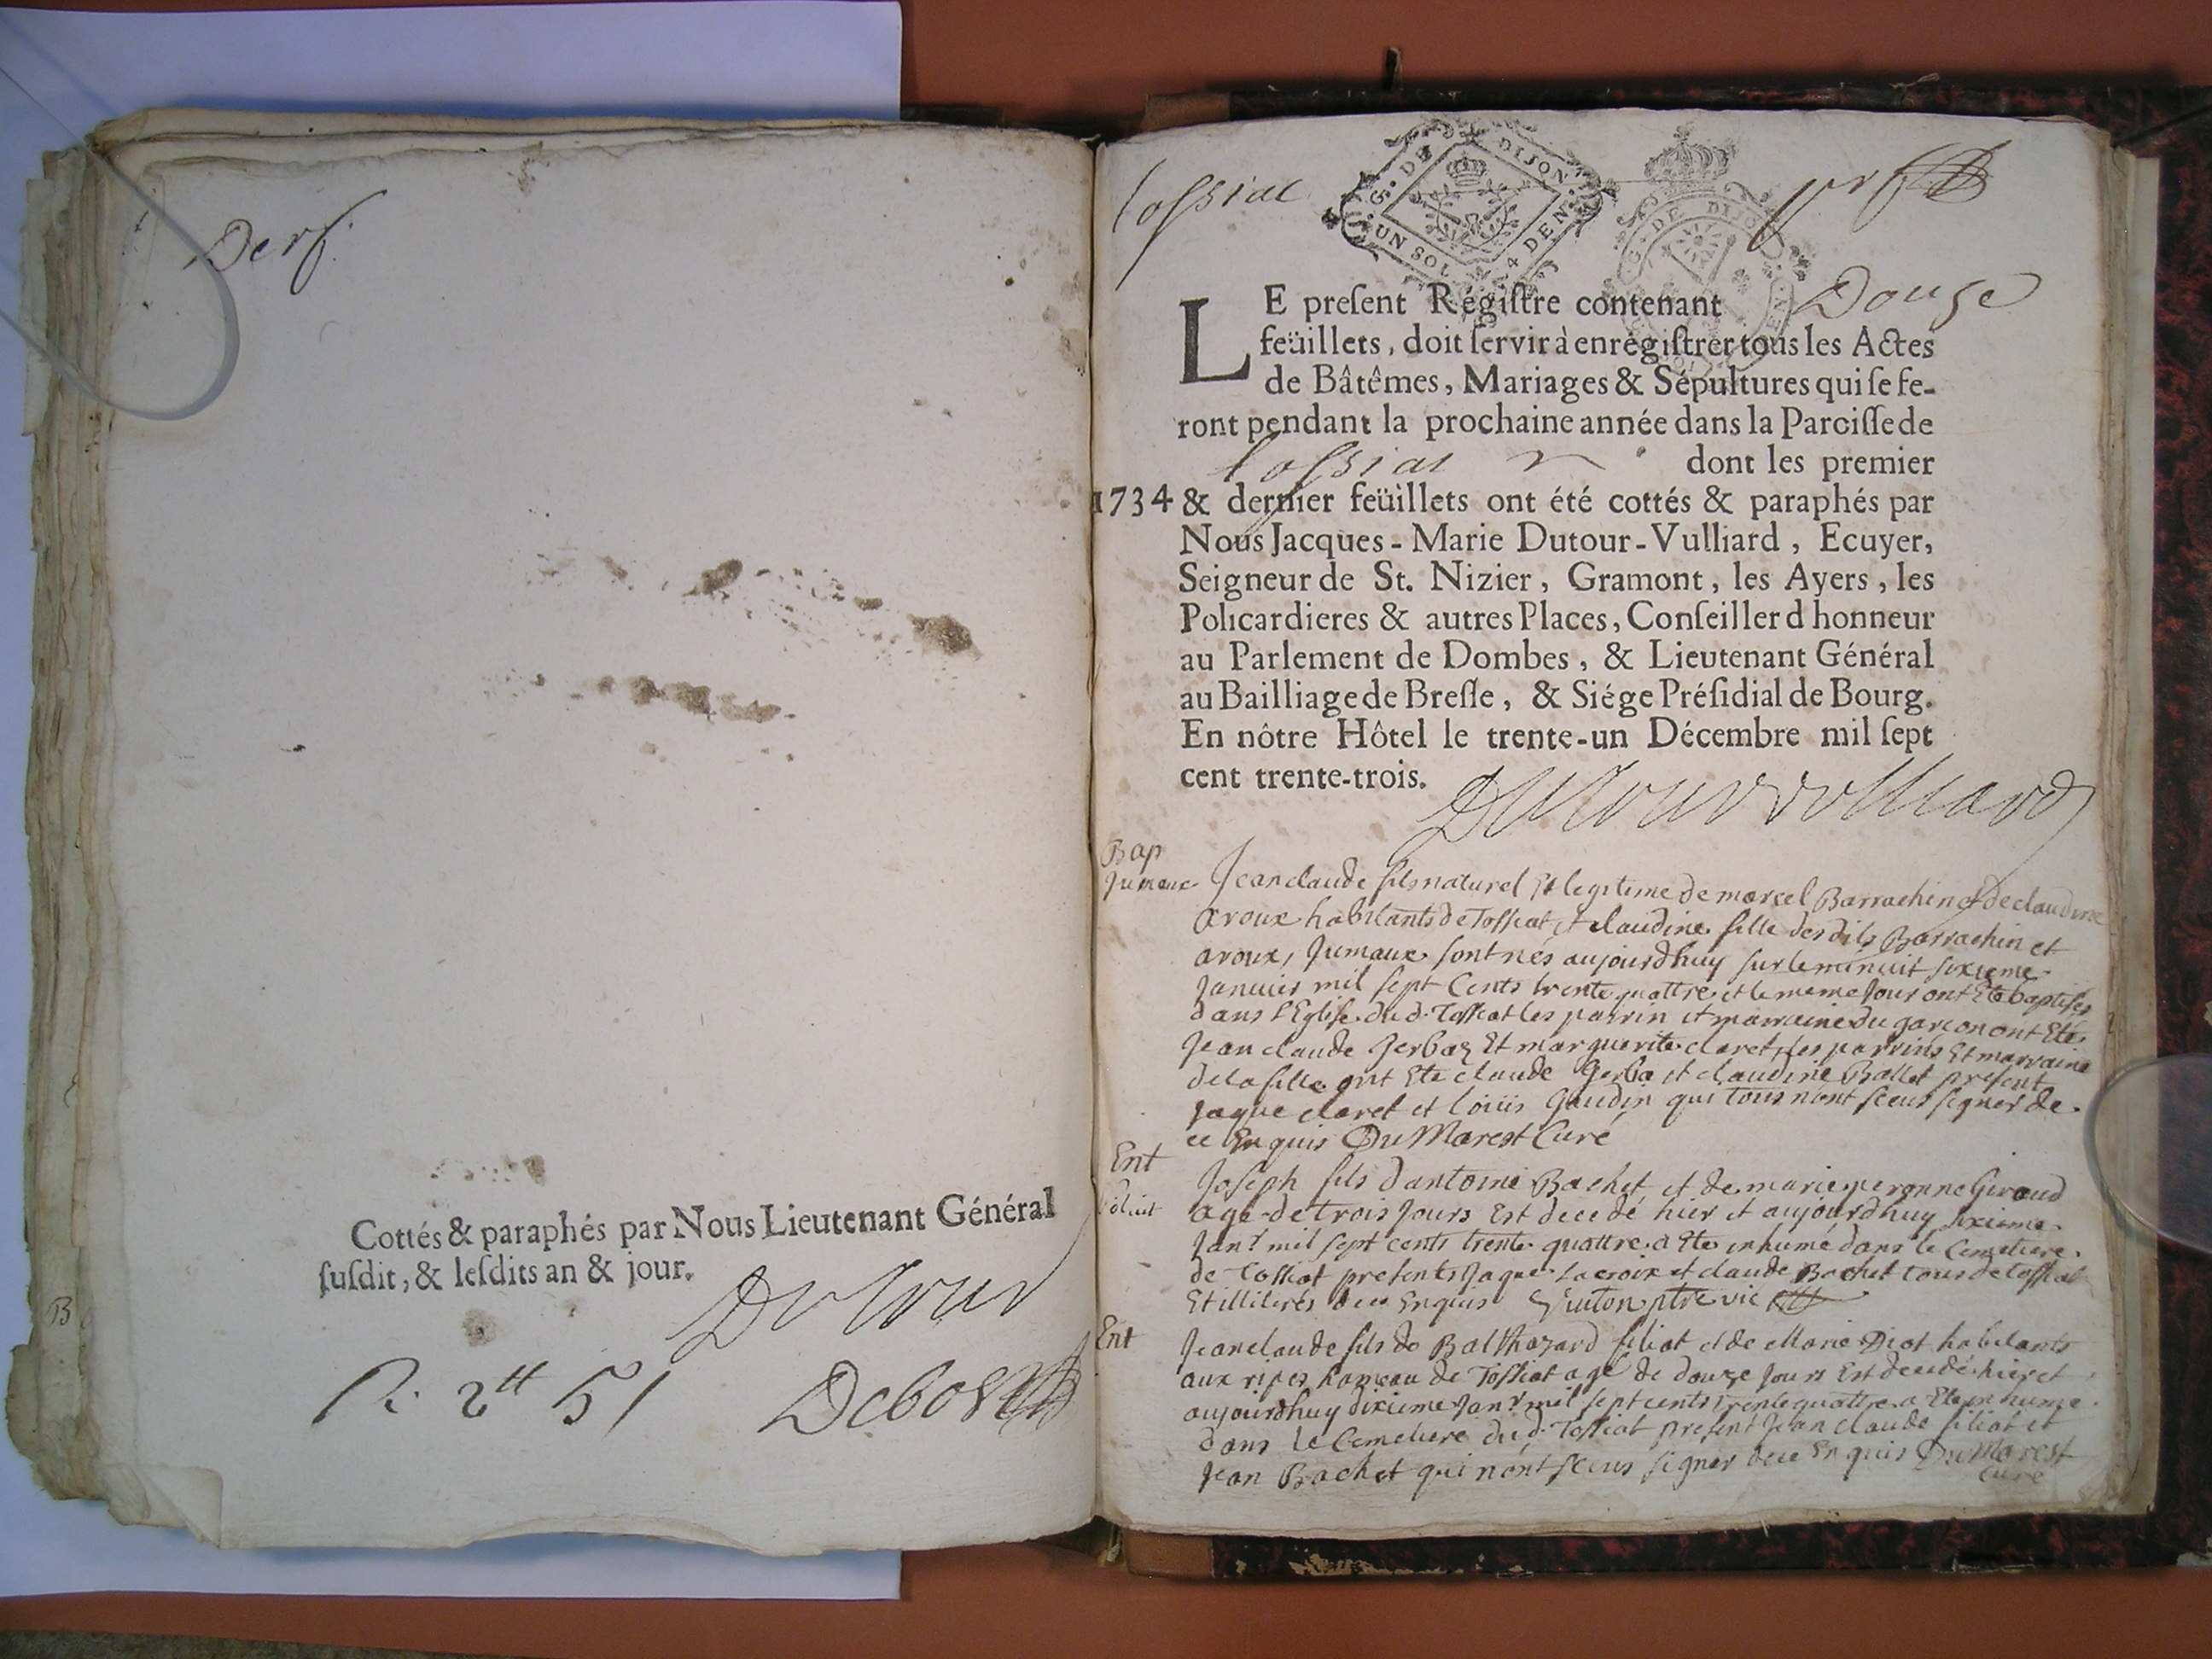 Derf.
Cottés & paraphés par Nous Lieutenant Général
ſuſdit, & leſdits an & jour.
Dutour
R. 2tt 5 f
B
Toſsiat
G. DE DIJON
UN SOL 4 DEN.
G. DE DIJON
Douze
LE preſent Régiſtre contenant
feüillets, doit ſervir à enrégiſtrer tous les Actes
de Bâtêmes, Mariages & Sépultures qui ſe fe-
ront pendant la prochaine année dans la Paroiſſe de
Toſsiat dont les premier
1734 & dernier feüillets ont été cottés & paraphés par
Nous Jacques-Marie Dutour-Vulliard, Ecuyer,
Seigneur de St. Nizier, Gramont, les Ayers, les
Policardieres & autres Places, Conſeiller d honneur
au Parlement de Dombes, & Lieutenant Général
au Bailliage de Breſſe, & Siége Préſidial de Bourg.
En nôtre Hôtel le trente-un Décembre mil ſept
cent trente-trois.
Dutour vulliard
Bap
Jumeaux Jean claude fils naturel Et legitime de marcel Barrachin et de claudine
aroux habitants de Toſſiat et claudine fille des dits Barrachin et
aroux, Jumaux sont nés aujourdhuy sur le minuit sixieme
Janvier mil sept Cents trente quattre et le meme Jour ont Eté baptises
dans l'Eglise du d. Toſſiat les parrin et marraine du garcon ont Eté
Jean claude Gerbaz Et marguerite claret, les parrins Et marraine
de la fille ont Ete claude Gerba et claudine Ballet present
Jaque claret et loüis Gaudin qui tous n'ont sceus signer de
ce Enquis DuMarest Curé
Ent Joseph fils d'antoine Bachet et de marie peronne Giroud
age de trois Jours Est decedé hier et aujourdhuy sixieme
Janr mil sept cents trente quattre a Ete inhumé dans le Cemetiere
de Toſſiat presents Jaque Lacroix et claude Bachet tous de Toſſiat
Et illiterés de ce Enquis ptre vic
Ent Jean claude fils de Balthazard filiat et de Marie Diot habitants
aux ripes hameau de Toſſiat agé de douze Jours Est decedé hier et
aujourdhuy dixieme Janr mil sept cents trente quattre a Ete inhumé
dans le Cemetiere du d. Toſſiat present Jean claude filiat et
Jean Bachet qui n'ont sceus signer de ce Enquis DuMarest
Curé